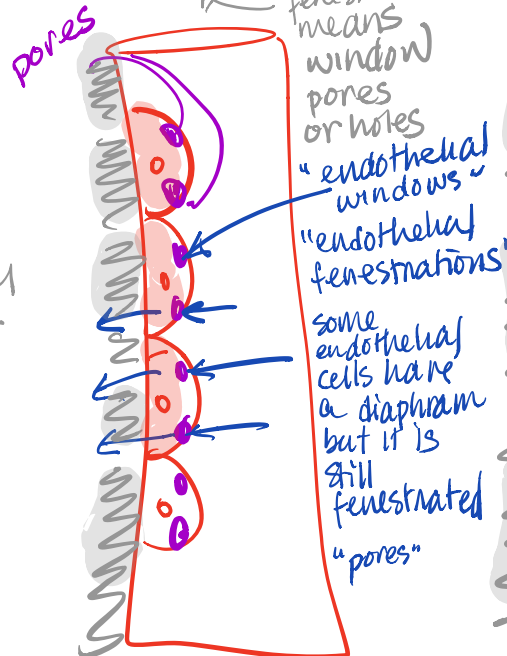 pores
means
window
pores
or holes
"endothelial
windows"
"endothelial
fenestrations"
some
endothelial
cells have
a diaphram
but it is
still
fenestrated
"pores"